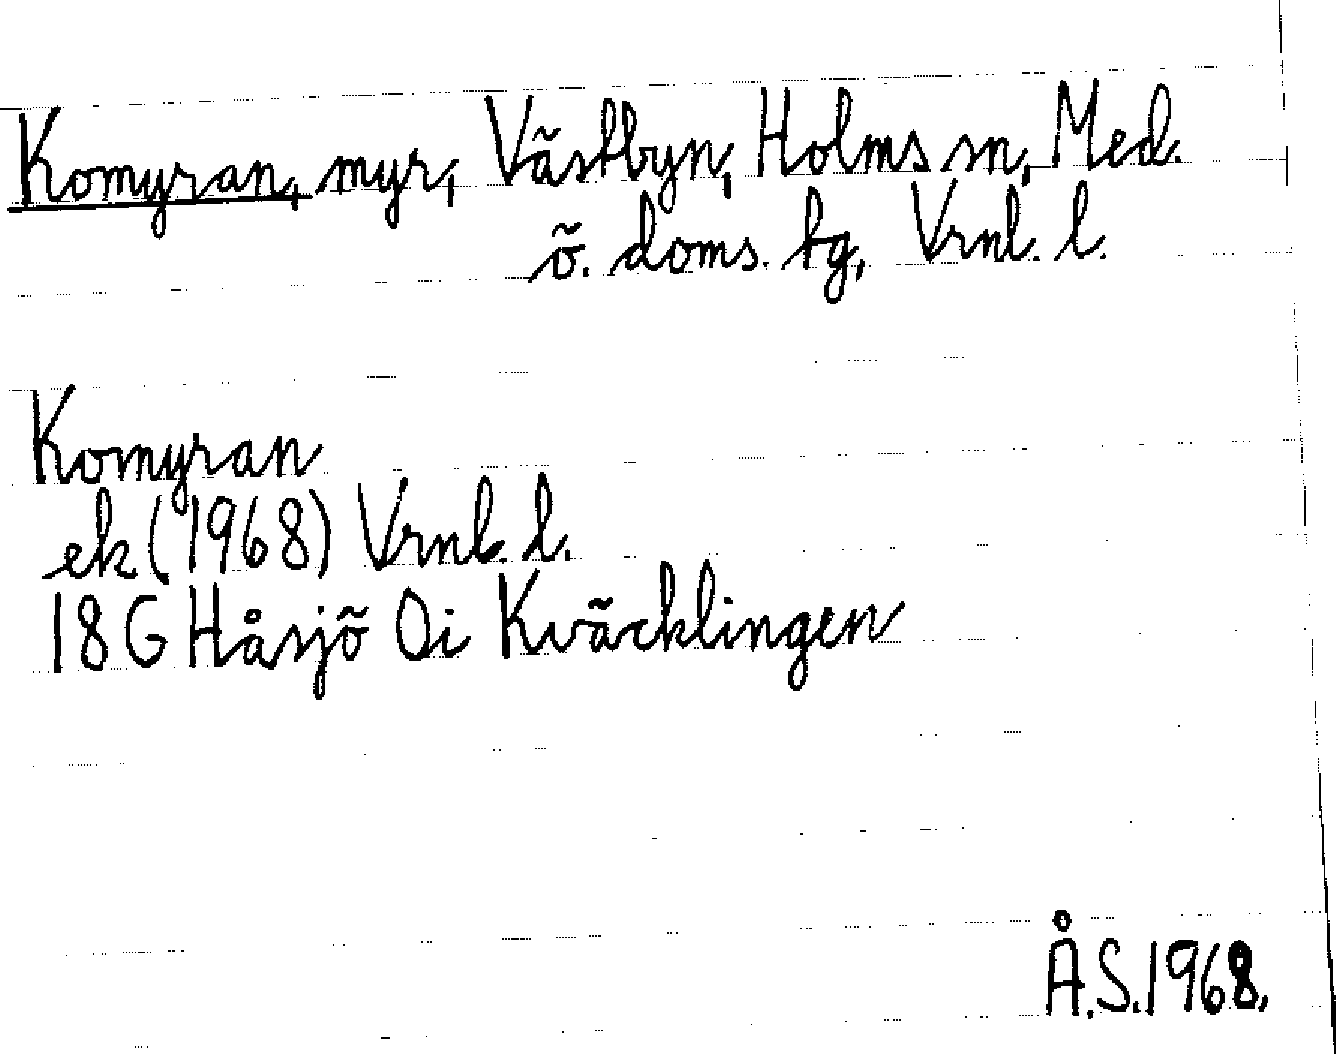 Komyran, myr, Västbyn, Holms sn, Med.
ö. doms. tg, Vrnl. l.
Komyran
ek (1968) Vrnl. l.
18G Håsjö Oi Kväcklingen
Å.S. 1968.